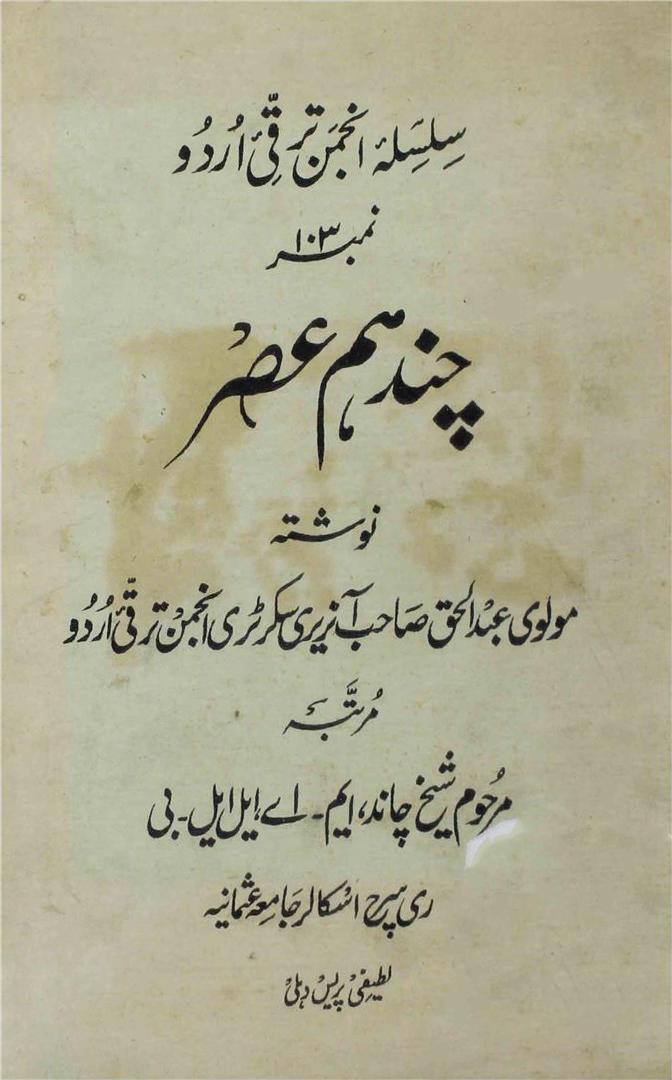 سِلسِلۂ انجمن ترقّیٔ اُردُو
نمبر ۱۰۳
چند ہم عصر
نوشتہ
مولوی عبد الحق صاحب آنریری سکرٹری انجمن ترقّیٔ اُردُو
مُرتَّبہ
مرحُوم شیخ چاند، ایم۔ اے، ایل ایل۔ بی
ری سرچ اسکالر جامعہ عثمانیہ
لطیفی پریس دہلی